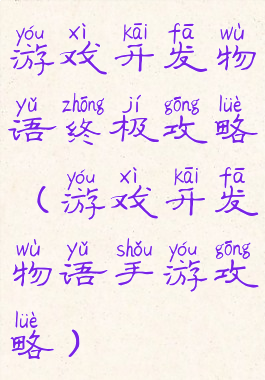 yóu xì kāi fā wù
游戏开发物
yǔ zhōng jí gōng lüè
语终极攻略
yóu xì kāi fā
（游戏开发
wù yǔ shǒu yóu gōng
物语手游攻
lüè
略）